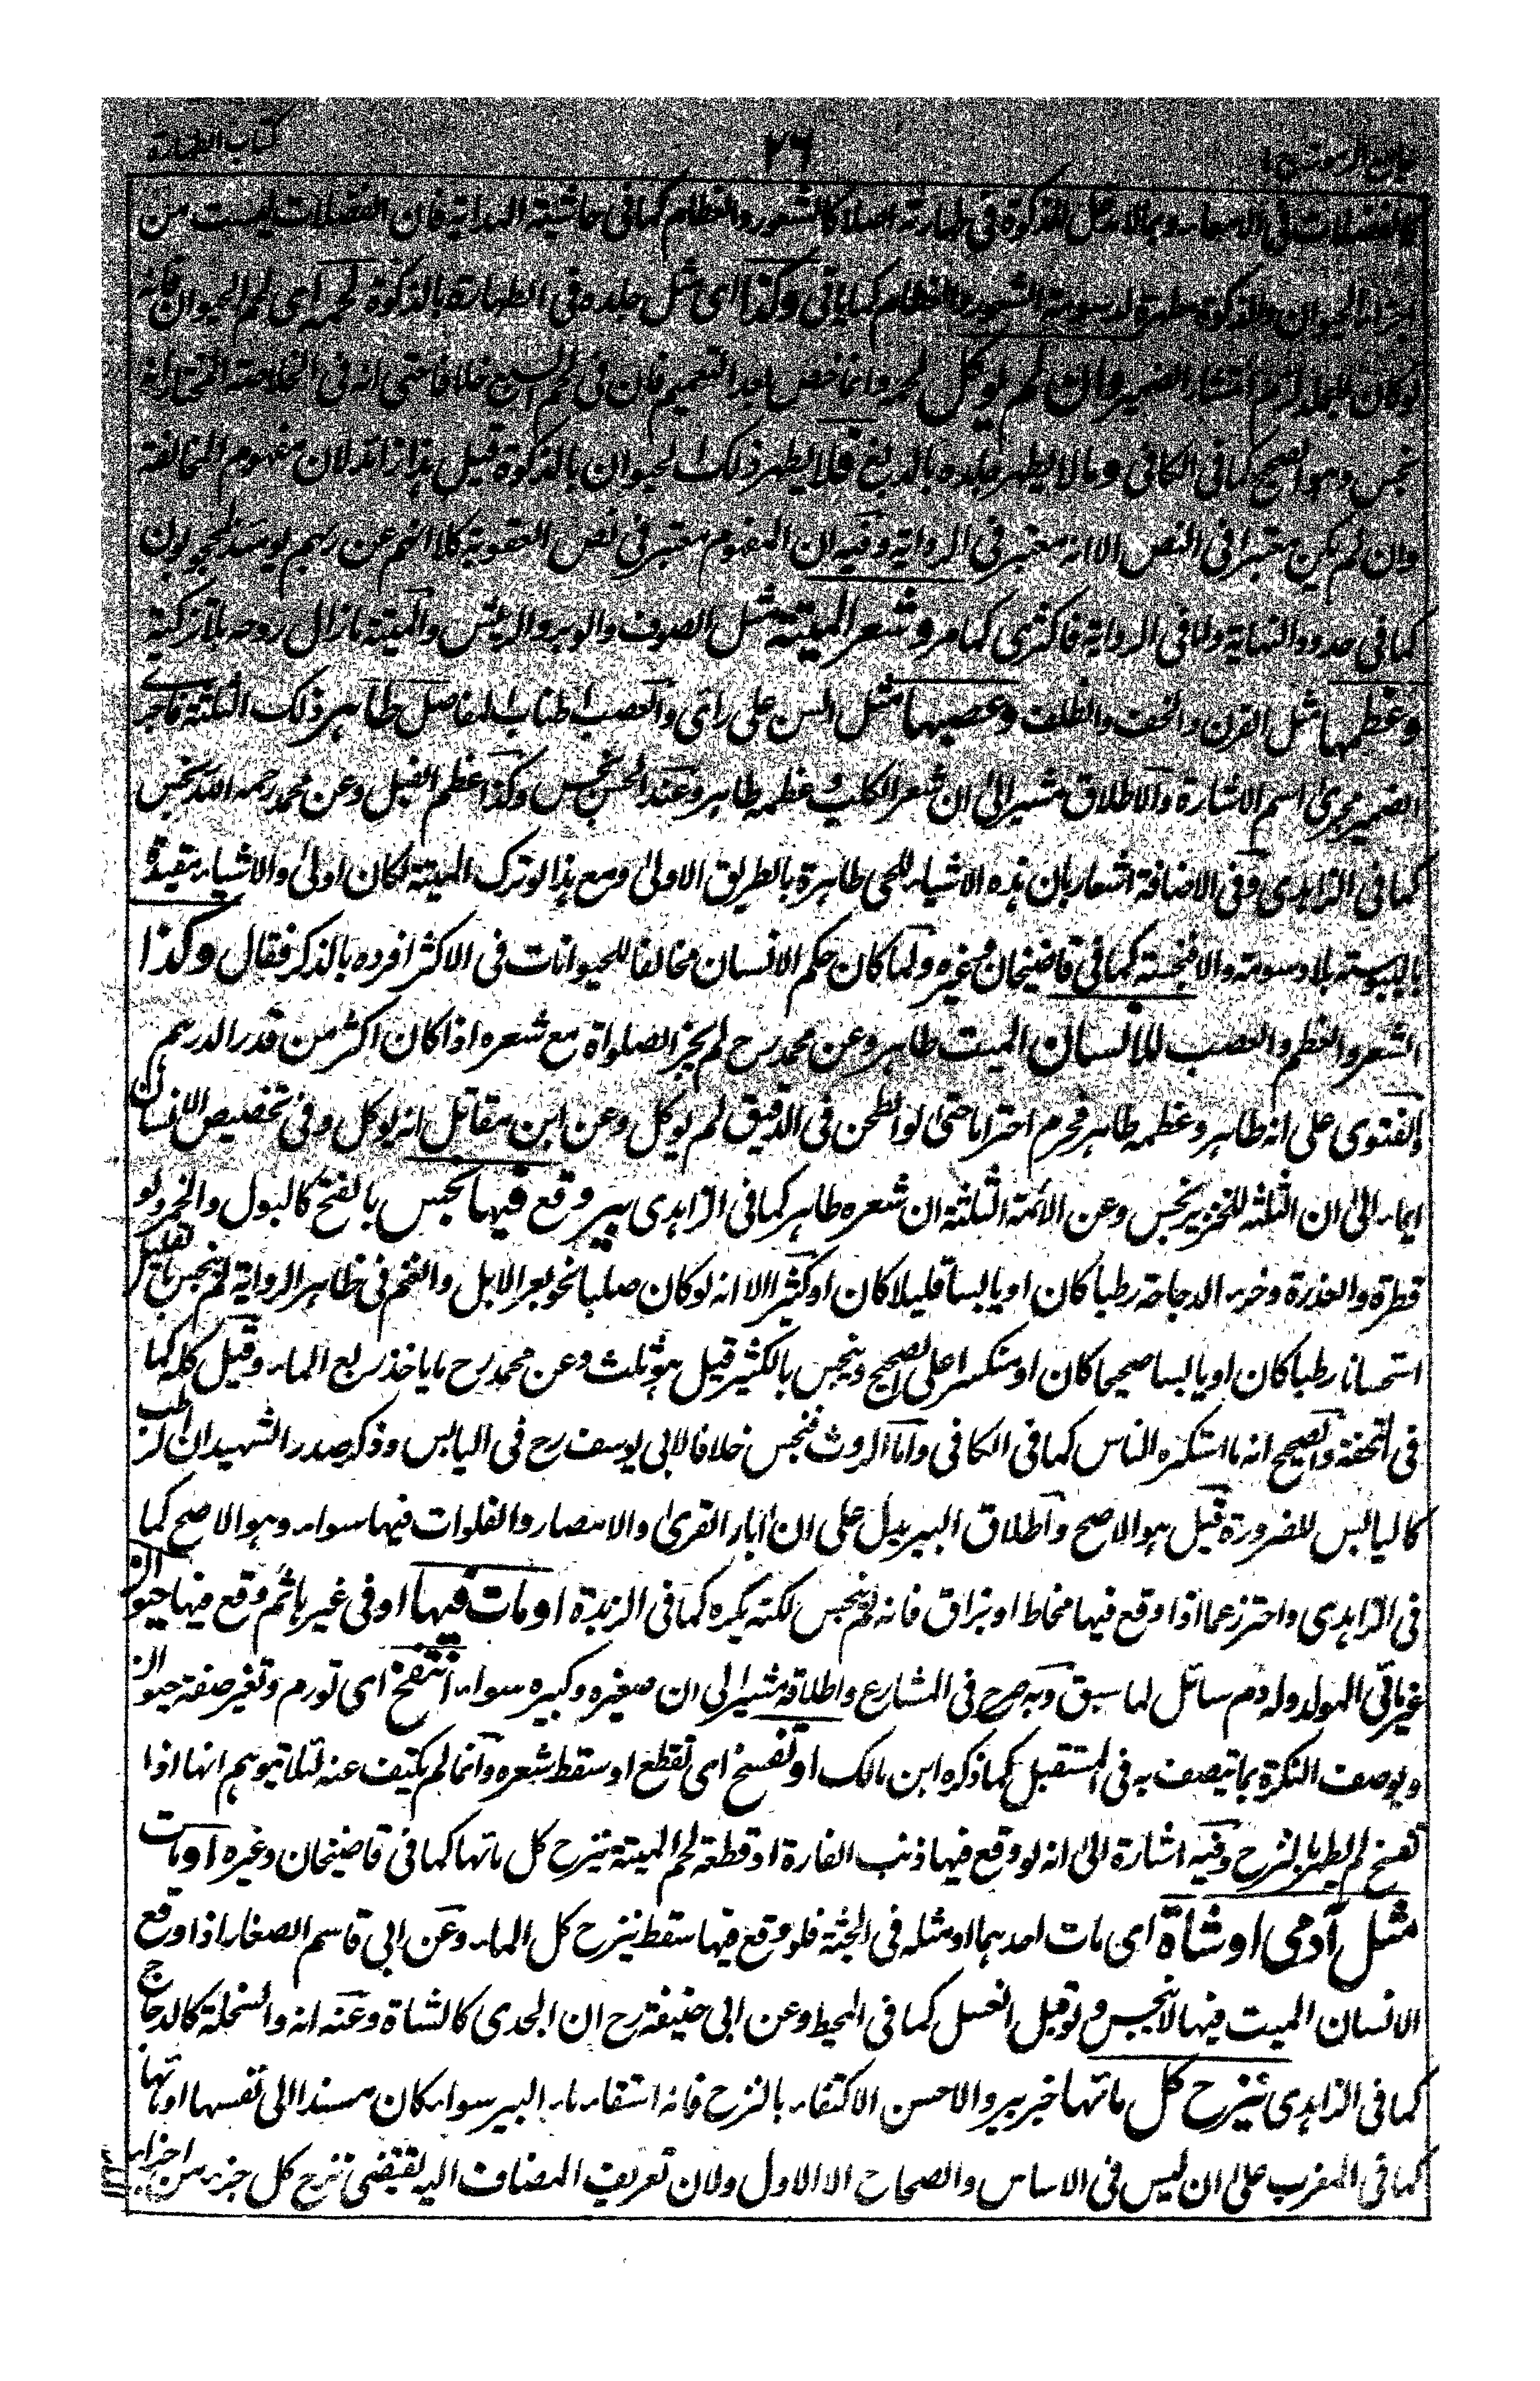 كتاب الطهارة ٢٦ جامع الرموز ج ١
كالفضلات فى الامعاء وبما لا دخل للذكوة فى طهارته اصلا كالشعور والعظام كما فى حاشية الهداية فان الفضلات ليست من
الحيوان والذكوة مطهرة لدسومة الشعور والعظام كما ياتى وكذا اى مثل جلده فى الطهارة بالذكوة لحمه اى لحم الحيوان فانه
لو كان للجلد لزم انتشار الضمير وان لم يوكل لحمه وانما خص بعد التعميم فان فى لحم السبع خلافا حتى انه فى الخلاصة المختار انه
نجس وهو الصحيح كما فى الكافى وما لا يطهر جلده بالدبغ فلا يطهر ذلك الحيوان بالذكوة قيل هذا زائد لان مفهوم المخالفة
وان لم يكن معتبرا فى النص الا انه معتبر فى الرواية وفيه ان المفهوم معتبر فى نص العقوبة كلا انهم عن ربهم يومئذ لمحجوبون
كما فى حدود النهاية واما فى الرواية فاكثرى كما مر وشعر الميتة مثل الصوف والوبر والريش والميتة ما زال روحه بلا تزكية
وعظمها مثل القرن والخف والظلف وعصبها مثل السن على راى والعصب اطناب المفاصل طاهر ذلك الثلثة فاجرى
الضمير مجرى اسم الاشارة والاطلاق مشير الى ان شعر الكلب وعظمه طاهر وعند الحسن نجس وكذا عظم الفيل وعن محمد رحمه الله نجس
كما فى الزاهدى وفى الاضافة اشعار بان هذه الاشياء للحى طاهرة بالطريق الاولى ومع هذا لو ترك الميتة لكان اولى والاشياء مقيدة
باليبوسة بلا دسومة والا فنجسة كما فى قاضيخان وغيره ولما كان حكم الانسان مخالفا للحيوانات فى الاكثر افرده بالذكر فقال وكذا
الشعر والعظم والعصب للانسان الميت طاهر وعن محمد رح لم يجز الصلواة مع شعره اذا كان اكثر من قدر الدرهم
والفتوى على انه طاهر وعظمه طاهر فحرم احتراما حتى لو طحن فى الدقيق لم يوكل وعن ابن مقاتل انه يوكل وفى تخصيص الانسان
ايماء الى ان الثلثة للخنزير نجس وعن الائمة الثلثة ان شعره طاهر كما فى الزاهدى بير وقع فيها نجس بالفتح كالبول والخمر ولو
قطرة والعذرة وخرء الدجاجة رطبا كان او يابسا قليلا كان او كثيرا الا انه لو كان صلبا نحو بعر الابل والغنم فى ظاهر الرواية لم ينجس بالقليل
استحسانا رطبا كان او يابسا صحيحا كان او منكسرا على الصحيح وينجس بالكثير قيل هو ثلث وعن محمد رح ما ياخذ ربع الماء وقيل كله كما
فى التحفة والصحيح انه ما استكثره الناس كما فى الكافى واما الروث فنجس خلافا لابى يوسف رح فى اليابس وذكر صدر الشهيد ان الرطب
كاليابس للضرورة قيل هو الاصح واطلاق البير يدل على ان ابار القرى والامصار والفلوات فيها سواء وهو الاصح كما
فى الزاهدى واحترز عما اذا وقع فيها مخاط او بزاق فانه لم ينجس لكنه يكره كما فى الزبدة او مات فيها او فى غيرها ثم وقع فيها حيوان
غير مائى المولد وله دم سائل لما سبق وبه صرح فى المشارع واطلاقه مشير الى ان صغيره وكبيره سواء انتفخ اى تورم وتغير صفة حيوان
ويوصف النكرة بما يتصف به فى المستقبل كما ذكره ابن مالك او تفسخ اى تقطع او سقط شعره وانما لم يكتف عنه لئلا يتوهم انها اذا
تفسخ لم يطهر بالنزح وفيه اشارة الى انه لو وقع فيها ذنب الفارة او قطعة لحم الميتة ينزح كل مائها كما فى قاضيخان وغيره او مات
مثل آدمى او شاة اى مات احدهما او مثله فى الجثة فلو وقع فيها سقط ينزح كل الماء وعن ابى قاسم الصفار اذا وقع
الانسان الميت فيها لا ينجس ولو قبل الغسل كما فى المحيط وعن ابى حنيفة رح ان الجدى كالشاة وعنه انه والسخلة كالدجاج
كما فى الزاهدى ينزح كل مائها خبر بير والاحسن الاكتفاء بالنزح فانه استقاء ماء البير سواء كان مسندا الى نفسها او مائها
كما فى المغرب على ان ليس فى الاساس والصحاح الا الاول ولان تعريف المضاف اليه يقتضى نزح كل جزء من اجزاء